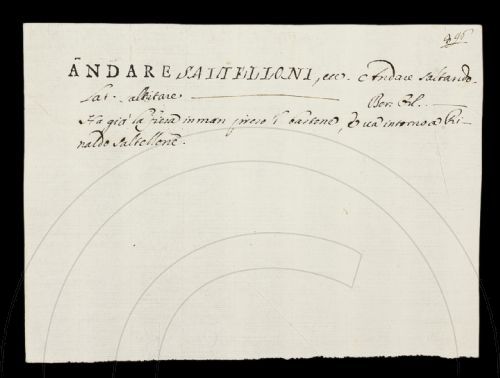 996
ANDARE SALTELLONI, ecc. Andare saltando.
Lat. altitare Ber. Orl.
Ha già la fiera in man preso il bastone, & va intorno a Ri-
naldo saltellone.